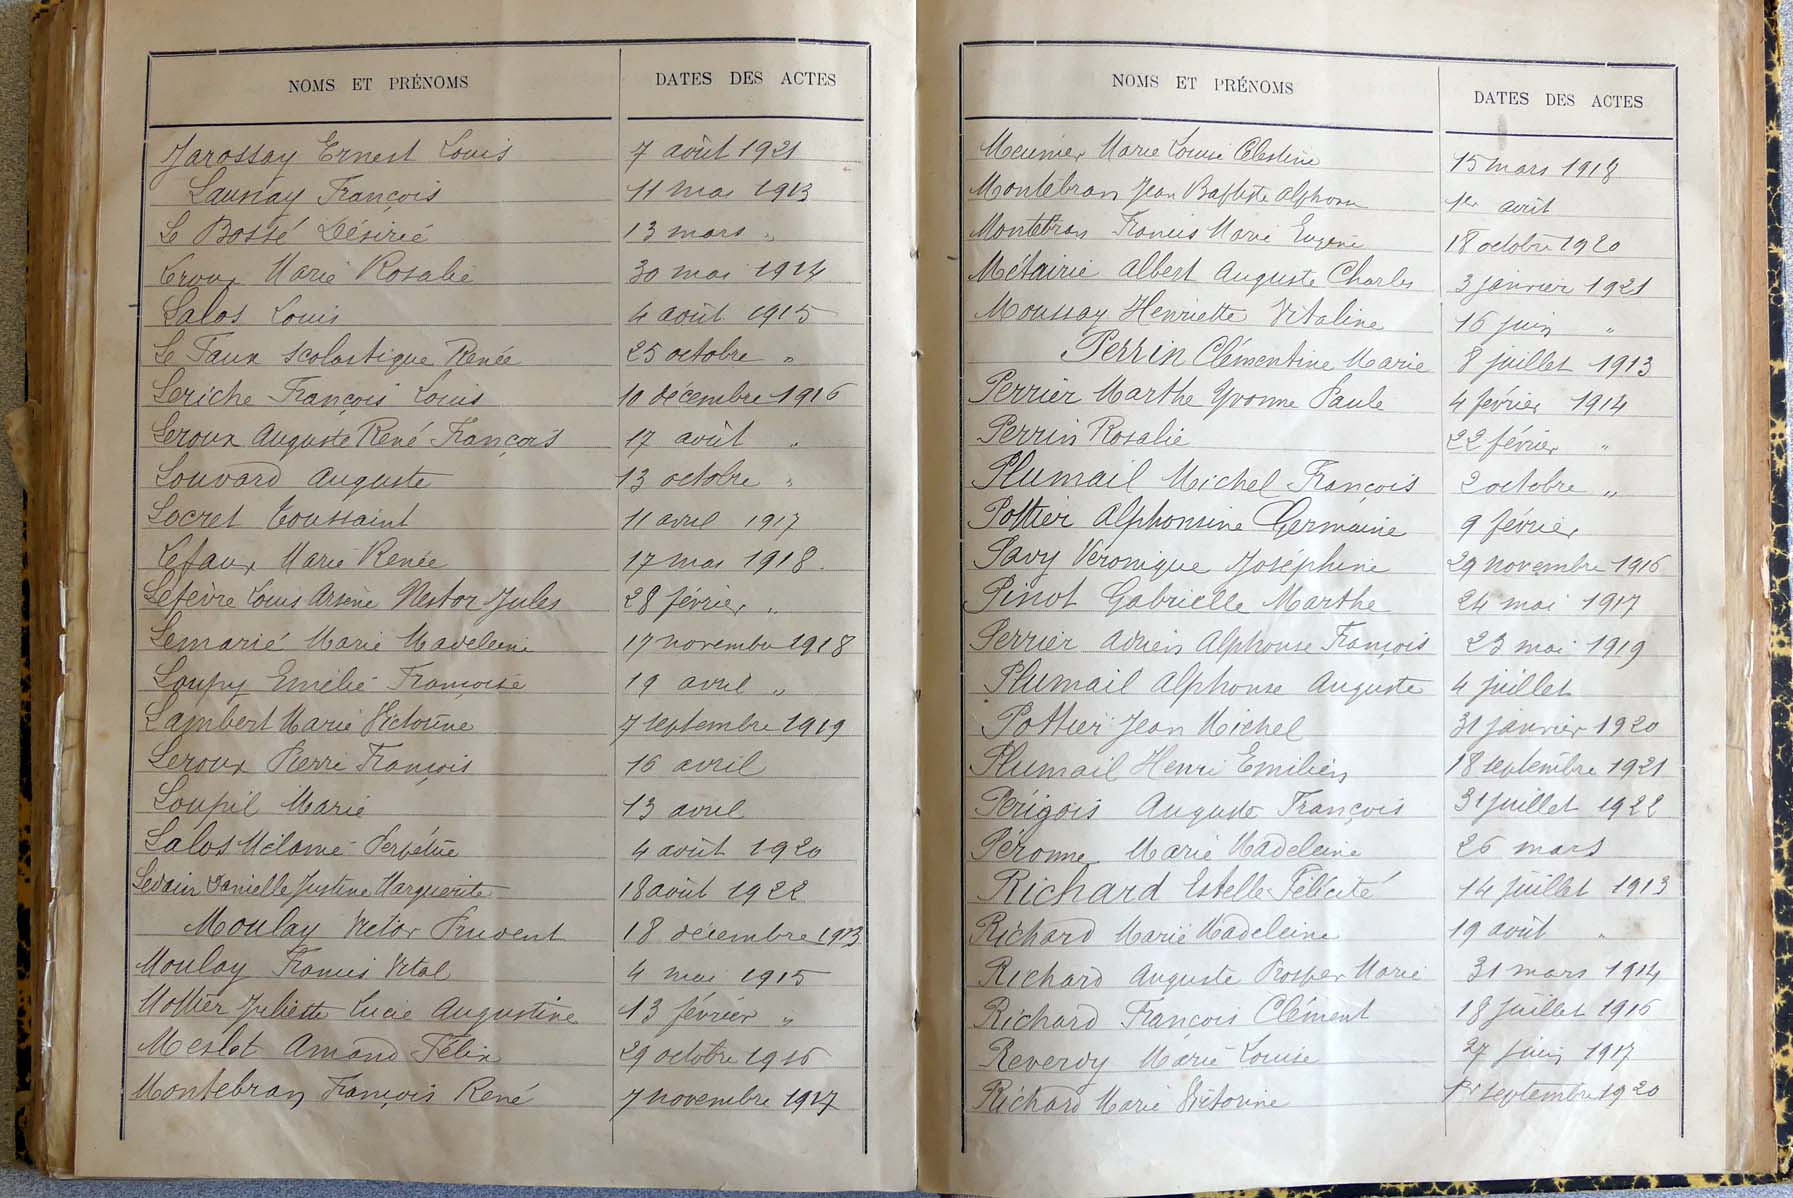 NOMS ET PRÉNOMS DATES DES ACTES
Jarossay Ernest Louis 7 août 1921
Launay François 11 mai 1913
Le Bossé Désirié 13 mars "
Leroux Marie Rosalie 30 mai 1914
Lalos Louis 4 août 1915
Le Faux Scolastique Renée 25 octobre "
Leriche François Louis 10 décembre 1916
Leroux Auguste René François 17 août "
Louvard Auguste 13 octobre "
Locret Toussaint 11 avril 1917
Lefaux Marie Renée 17 mai 1918
Lefèvre Louis Arsène Nestor Jules 28 février "
Lemarié Marie Madeleine 17 novembre 1918
Loupy Emélie Françoise 19 avril "
Lambert Marie Victorine 7 septembre 1919
Leroux Pierre François 16 avril
Loupil Marie 13 avril
Lalos Mélanie Perpétue 4 août 1920
Danielle Justine Marguerite 18 août 1922
Moulay Victor Prudent 18 décembre 1913
Moulay Francis Vital 4 mai 1915
Mottier Juliette Lucie Augustine 13 février "
Meslet Amand Félix 29 octobre 1916
Montebran François René 7 novembre 1917
NOMS ET PRÉNOMS DATES DES ACTES
Meunier Marie Louise Célestine 15 mars 1918
Montebran Jean Baptiste Alphonse 1er août
Montebran Francis Marie Eugène 18 octobre 1920
Métairie Albert Auguste Charles 3 janvier 1921
Moussay Henriette Vitaline 16 juin "
Perrin Clémentine Marie 8 juillet 1913
Perrier Marthe Yvonne Paule 4 février 1914
Perrin Rosalie 22 février "
Plumail Michel François 2 octobre "
Pottier Alphonsine Germaine 9 février
Pavy Véronique Joséphine 29 novembre 1916
Pinot Gabrielle Marthe 24 mai 1917
Perrier Adrien Alphonse François 23 mai 1919
Plumail Alphonse Auguste 4 juillet
Pottier Jean Michel 31 janvier 1920
Plumail Henri Emilien 18 septembre 1921
Périgois Auguste François 31 juillet 1922
Péronne Marie Madeleine 26 mars
Richard Estelle Félicité 14 juillet 1913
Richard Marie Madeleine 19 août "
Richard Auguste Prosper Marie 31 mars 1914
Richard François Clément 18 juillet 1916
Reverdy Marie Louise 27 juin 1917
Richard Marie Victorine 1er septembre 1920